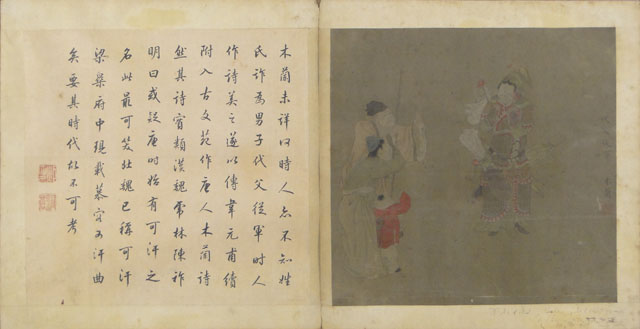 木蘭未詳何時人亦不知姓
氏詐為男子代父從軍時人
作詩美之遂以傳韋元甫續
附入古文苑作唐人木蘭詩
然其詩實類漢魏虎林陳祚
明曰或疑唐時始有可汗之
名此最可笑北魏已稱可汗
梁樂府中現載慕容可汗曲
矣要其時代故不可考
木蘭